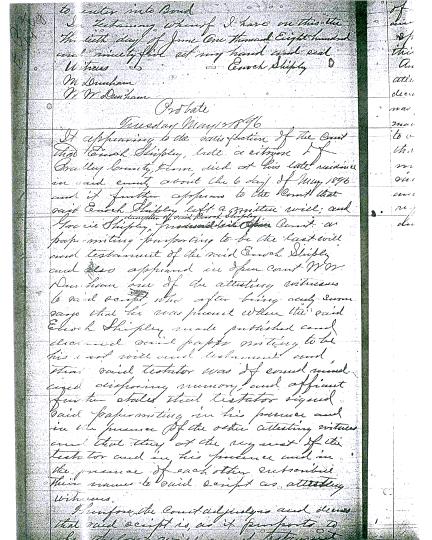 to enter into Bond
In testimony whereof I have on this the
day of June one thousand Eight hundred
and ninety five set my hand and seal
Witness Enoch Shipley
M Denham
W. W. Denham
Probate
Tuesday May 1896
It appearing to the satisfaction of the Court
that Enoch Shipley, late a citizen of
Bradley County, Tenn, died at his late residence
in said county about the 6 day of May 1896
and it further appears to the Court that
said Enoch Shipley left a written will, and
daughter of said Enoch Shipley
Shipley, produced in Open Court a
paper writing purporting to be the last will
and testament of the said Enoch Shipley
and also appeared in open court W. W.
Denham one of the attesting witnesses
to said script, who after being duly sworn
says that he was present when the said
Enoch Shipley made published and
declared said paper writing to be
his last will and testament and
that said testator was of sound mind
and disposing memory and affiant
further states that testator signed
said paper writing in his presence and
in the presence of the other attesting witness
and that they at the request of the
testator and in his presence and in
the presence of each other subscribed
their names to said script as attesting
witness.
Therefore the Court adjudges and decrees
that said script is as it purports to